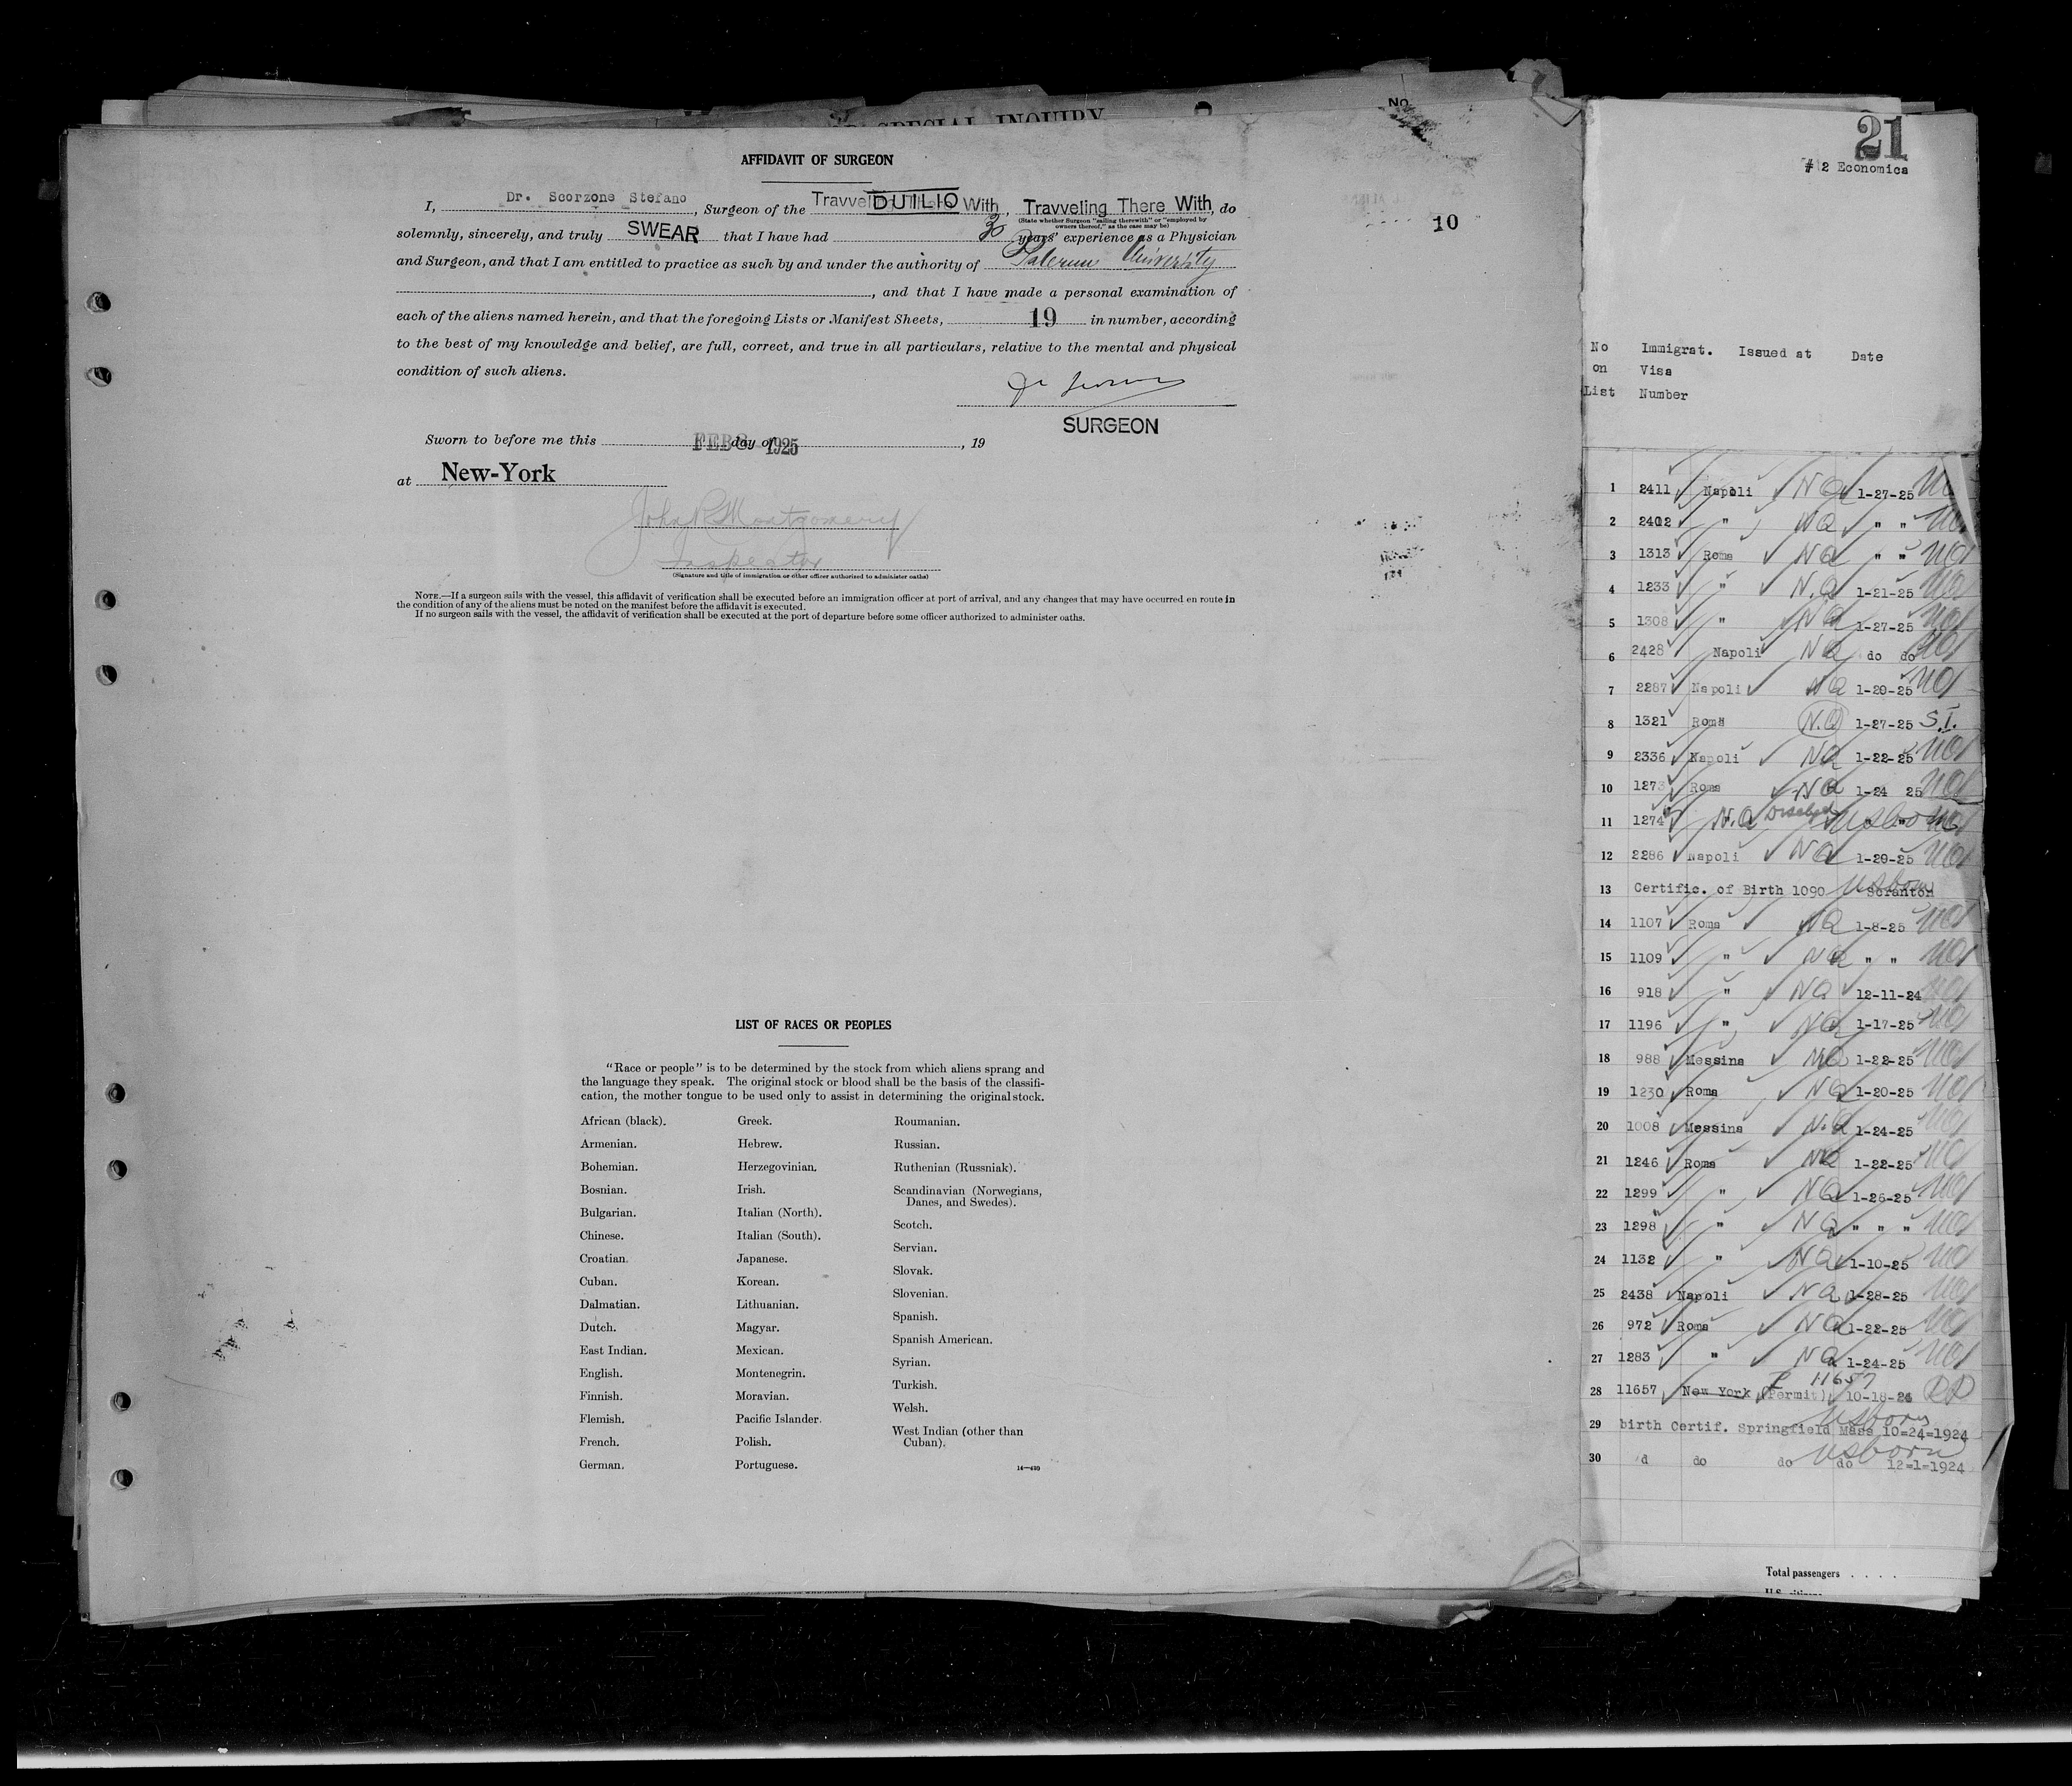 SPECIAL INQUIRY
No.
AFFIDAVIT OF SURGEON
I, Dr. Scorzone Stefano, Surgeon of the DUILIO With, Travveling There With, do
(State whether Surgeon "sailing therewith" or "employed by
owners thereof," as the case may be)
solemnly, sincerely, and truly SWEAR that I have had 30 years' experience as a Physician
and Surgeon, and that I am entitled to practice as such by and under the authority of Palermo University
, and that I have made a personal examination of
each of the aliens named herein, and that the foregoing Lists or Manifest Sheets, 19 in number, according
to the best of my knowledge and belief, are full, correct, and true in all particulars, relative to the mental and physical
condition of such aliens.
SURGEON
Sworn to before me this FEB 8 day of 1925, 19
at New-York
John P Montgomery
Inspector
(Signature and title of immigration or other officer authorized to administer oaths)
NOTE.—If a surgeon sails with the vessel, this affidavit of verification shall be executed before an immigration officer at port of arrival, and any changes that may have occurred en route in
the condition of any of the aliens must be noted on the manifest before the affidavit is executed.
If no surgeon sails with the vessel, the affidavit of verification shall be executed at the port of departure before some officer authorized to administer oaths.
10
LIST OF RACES OR PEOPLES
"Race or people" is to be determined by the stock from which aliens sprang and
the language they speak. The original stock or blood shall be the basis of the classifi-
cation, the mother tongue to be used only to assist in determining the original stock.
African (black).
Armenian.
Bohemian.
Bosnian.
Bulgarian.
Chinese.
Croatian.
Cuban.
Dalmatian.
Dutch.
East Indian.
English.
Finnish.
Flemish.
French.
German.
Greek.
Hebrew.
Herzegovinian.
Irish.
Italian (North).
Italian (South).
Japanese.
Korean.
Lithuanian.
Magyar.
Mexican.
Montenegrin.
Moravian.
Pacific Islander.
Polish.
Portuguese.
Roumanian.
Russian.
Ruthenian (Russniak).
Scandinavian (Norwegians,
Danes, and Swedes).
Scotch.
Servian.
Slovak.
Slovenian.
Spanish.
Spanish American.
Syrian.
Turkish.
Welsh.
West Indian (other than
Cuban).
14—430
21
# 2 Economica
No Immigrat. Issued at Date
on Visa
List Number
1 2411 Napoli NQ 1-27-25
2 2402 " NQ " "
3 1313 Roma NQ " "
4 1233 " N.Q 1-21-25
5 1308 " NQ 1-27-25
6 2428 Napoli NQ do do
7 2287 Napoli NQ 1-20-25
8 1321 Roma N.Q 1-27-25 S.I.
9 2336 Napoli NQ 1-22-25
10 1273 Roma NQ 1-24 25
11 1274 N.Q usborn
12 2286 Napoli NQ 1-20-25
13 Certific. of Birth 1090 Scranton usborn
14 1107 Roma NQ 1-8-25
15 1109 " NQ " "
16 918 " NQ 12-11-24
17 1196 " NQ 1-17-25
18 988 Messina NQ 1-22-25
19 1230 Roma NQ 1-20-25
20 1008 Messina N.Q 1-24-25
21 1246 Roma NQ 1-22-25
22 1299 " NQ 1-26-25
23 1298 " NQ " " "
24 1132 " NQ 1-10-25
25 2438 Napoli NQ 1-28-25
26 972 Roma NQ 1-22-25
27 1283 " NQ 1-24-25
P 11657
28 11657 New York (Permit) 10-18-24 RP
usborn
29 birth Certif. Springfield Mass 10=24=1924
usborn
30 d do do do 12=1=1924
Total passengers . . . .